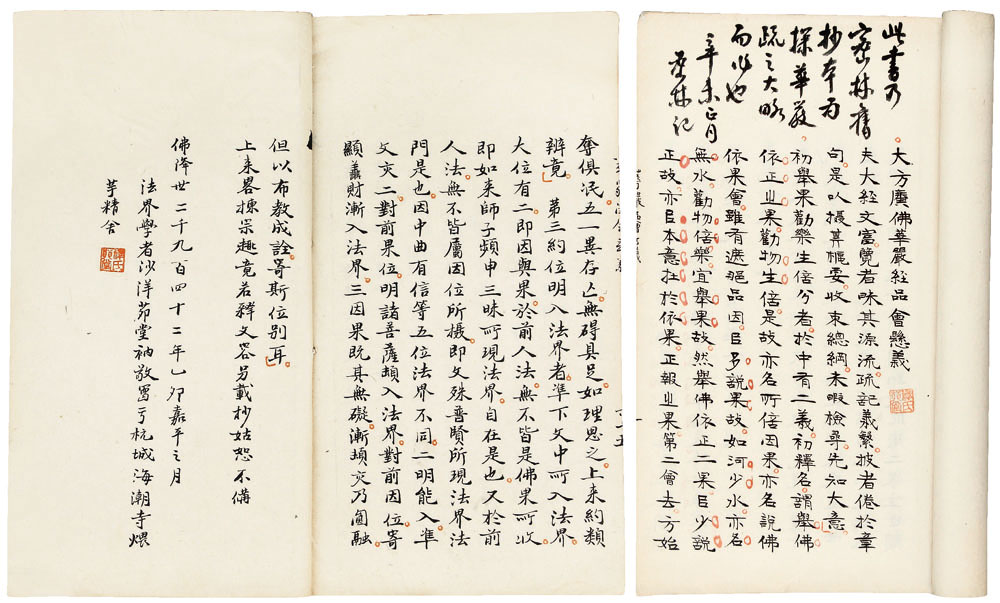 此書乃
密林舊
抄本为
探華嚴
疏之大略
而作也
辛未正月
密林记
大方廣佛華嚴經品會懸義
夫大經文富覽者昧其源流疏記義繁披者倦於章
句是以攝其樞要收束總綱未暇檢尋先知大意
初舉果勸樂生信分者於中有二義初釋名謂舉佛
依正业果勸物生信是故亦名所信因果亦名說佛
依果會雖有遮那品因目多說果故如河少水亦名
無水勸物信樂宜舉果故然舉佛依正二果目少說
正故亦目本意在於依果正報业果第二會去方始
奪俱泯五一異存亡無碍具足如理思之上来約類
辨竟 第三約位明入法界者準下文中所入法界
大位有二即因與果於前人法無不皆是佛果所收
即如来師子頻申三昧所現法界自在是也又於前
人法無不皆屬因位所攝即文殊普賢所現法界法
門是也因中曲有信等五位法界不同二明能入準
文亦二對前果位明諸菩薩頓入法界對前因位寄
顯善財漸入法界三因果既其無礙漸頓亦乃圓融
但以布教成詮寄斯位別耳
上来畧揀宗趣竟若釋文畧另載抄姑恕不備
佛降世二千九百四十二年乙卯嘉平之月
法界學者沙洋茆堂衲敬寫于杭城海潮寺煨
芋精舍